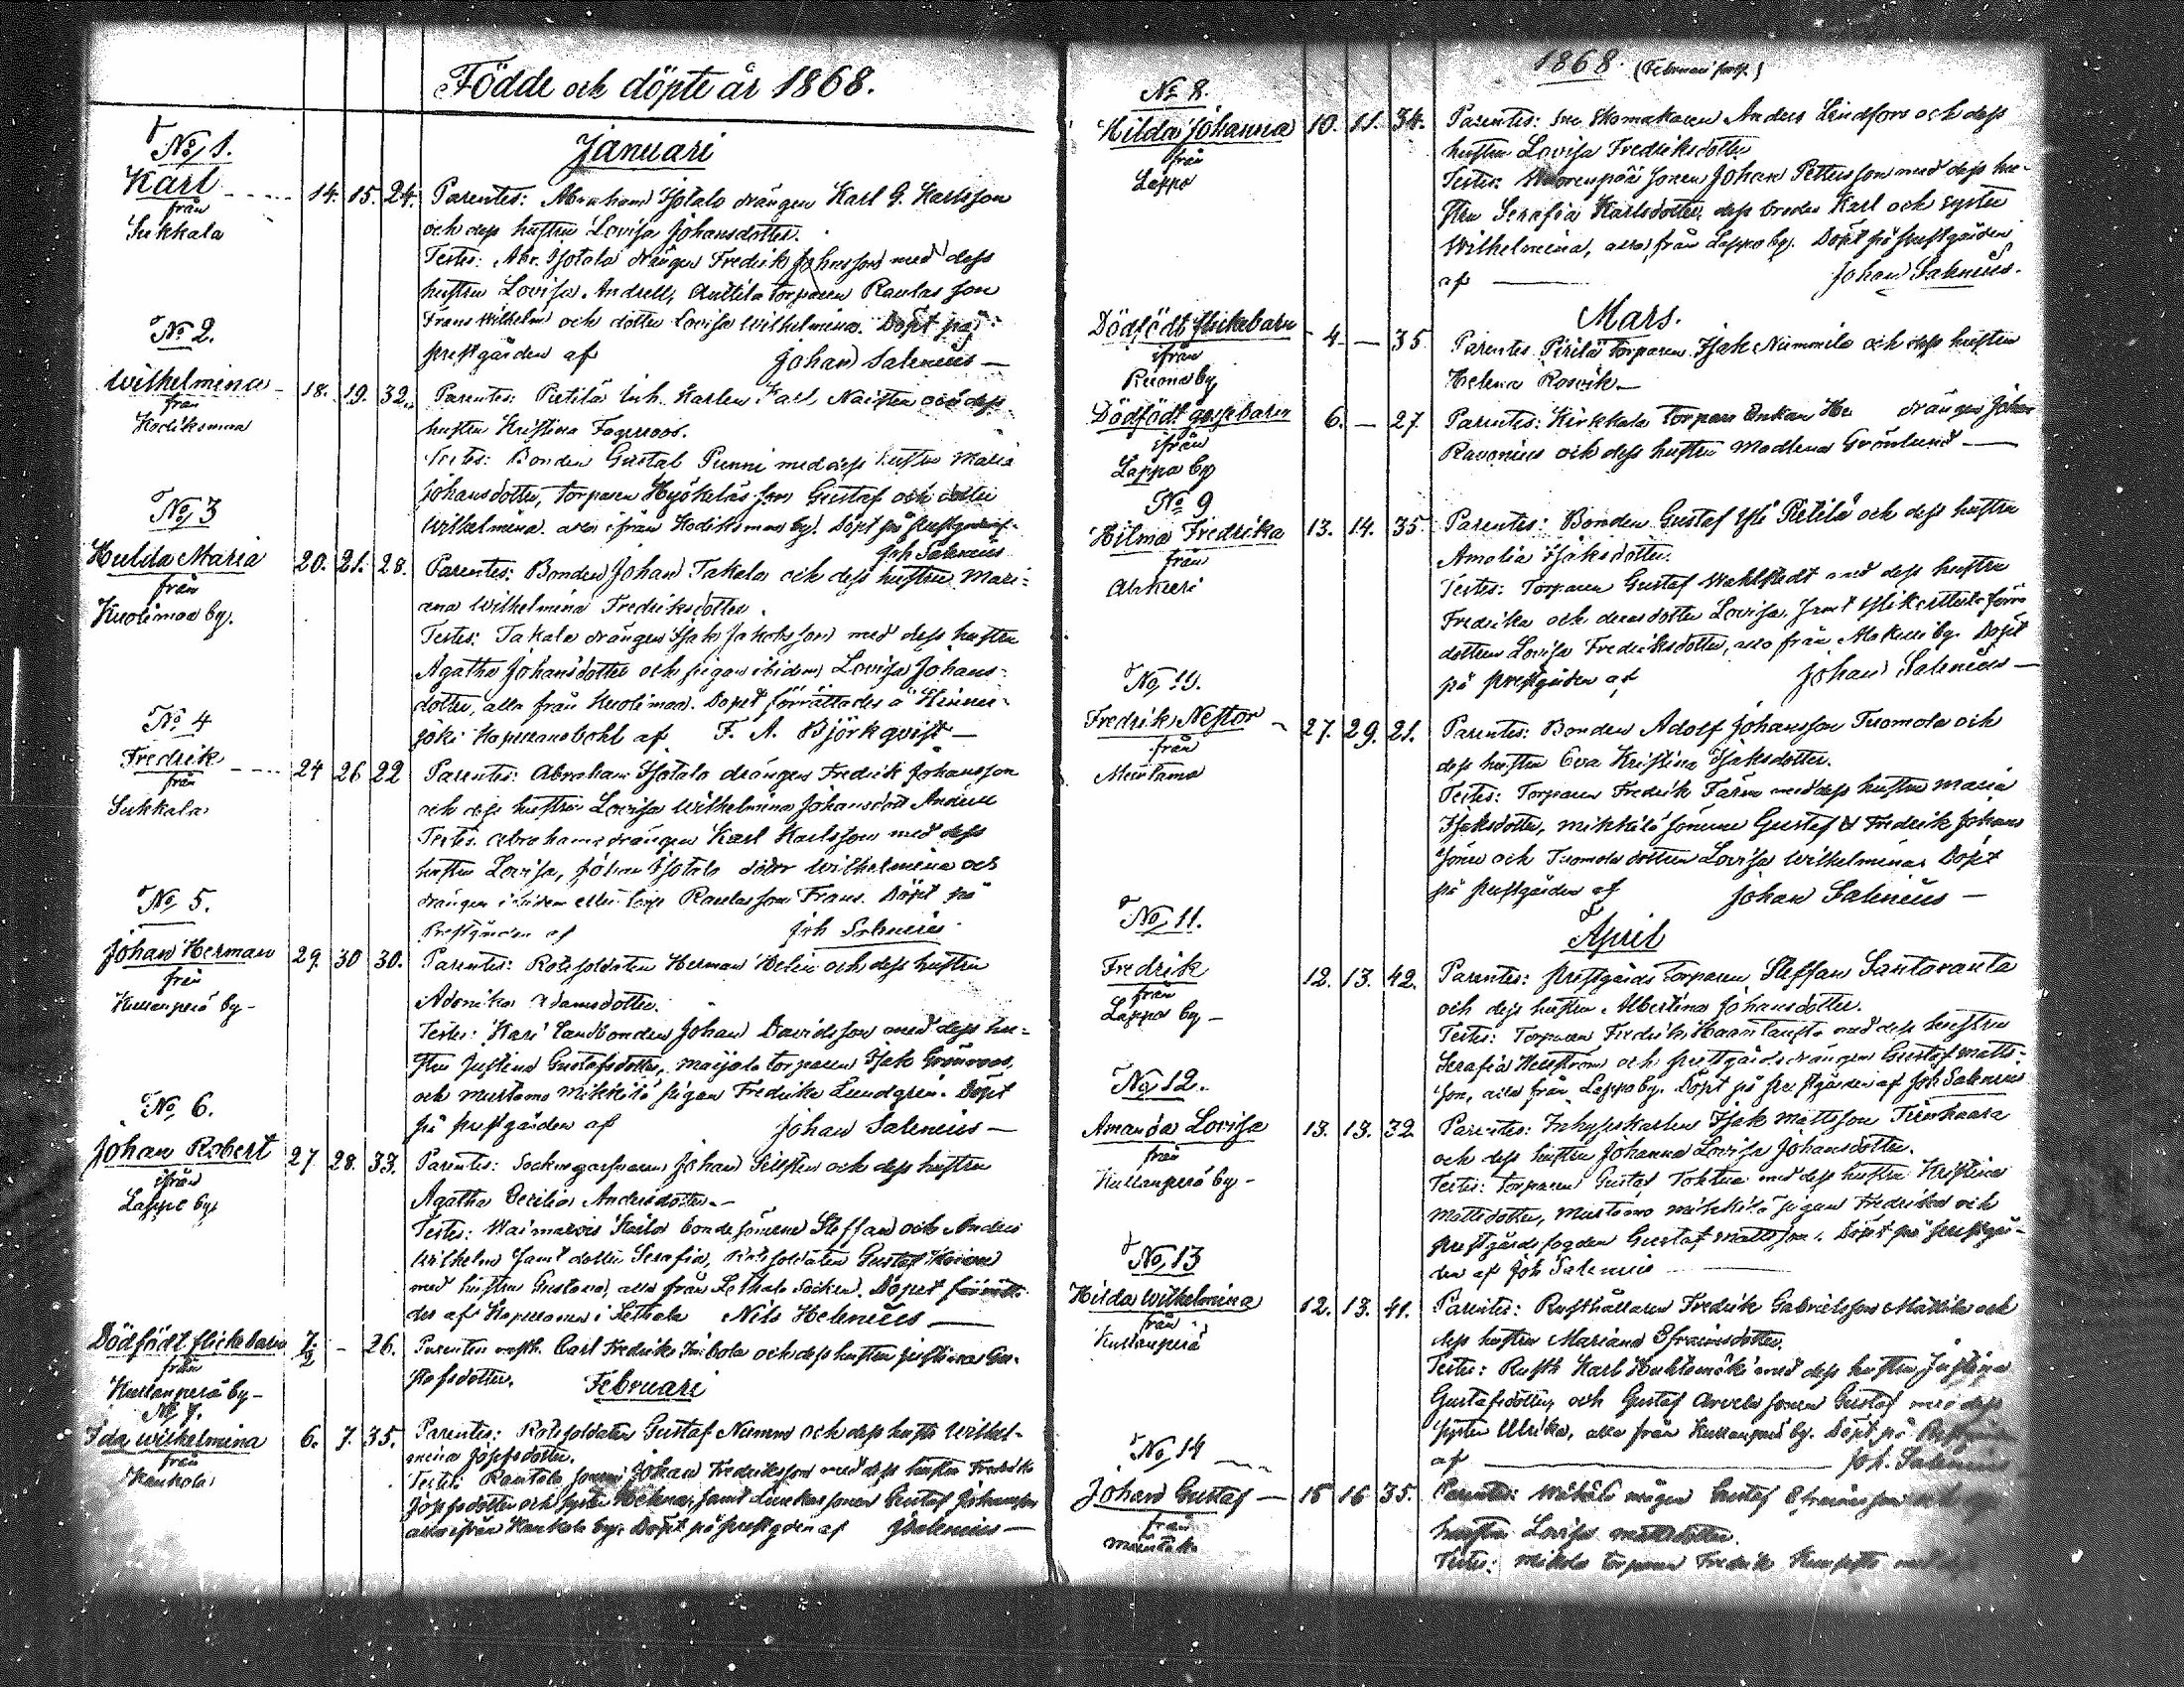 Födde och döpte år 1868.
Januari
No 1.
Karl 14. 15. 24.
från
Sukkala
Parentes: Abraham Isotalo drängen Karl G. Karlsson
och dess hustru Lovisa Johansdotter.
Testes: Abr. Isotalo drängen Fredrik Johansson med dess
hustru Lovisa Andell, Anttila torparen Rantas son
Frans Wilhelm och dotter Lovisa Wilhelmina. Döpt på
prestgården af Johan Salenius
No 2.
Wilhelmina 18. 19. 32.
från
Kodiksama
Parentes: Pietilä inh. Karlen Karl och dess
hustru Kristina Fagerroos.
Testes: Bonden Gustaf Punni med dess hustru Maria
Johansdotter, torparen son Gustaf och dotter
Wilhelmina. alla ifrån by. Döpt på prestgården af
Joh Salenius
No 3
Hulda Maria 20. 21. 28.
från
Kuolimaa by.
Parentes: Bonden Johan Takala och dess hustru Mari-
ana Wilhelmina Fredriksdotter.
Testes: Takala drängen Isak Jakobsson med dess hustru
Agatha Johansdotter och pigan ibidem Lovisa Johans-
dotter, alla från Kuolimaa. Dopet förrättades å Hinner-
joki Kapellansbohl af F. A. Björkqvist
No 4
Fredrik 24 26 22
från
Sukkala
Parentes: Abraham Isotalo drängen Fredrik Johansson
och dess hustru Lovisa Wilhelmina Johansdotr Andell
Testes. Abrahams drängen Karl Karlsson med dess
hustru Lovisa, Johan Isotalo dotter Wilhelmina och
drängen ibidem Rantas son Frans. Döpt på
Prestgården af Joh Salenius
No 5.
Johan Herman 29. 30 30.
från
Kullanperä by
Parentes: Rotesoldaten Herman Helin och dess hustru
Adamsdotter.
Testes: Kari Landbonden Johan Davidsson med dess hu-
stru Justina Gustafsdotter, Maijala torparen Isak Grönroos,
och Mustamo Mikkilä pigan Fredrika Lundgren. Döpt
på prestgården af Johan Salenius
No 6.
Johan Robert 27 28. 33.
ifrån
Lappo by
Parentes: Sockengarfvaren Johan Sellsten och dess hustru
Agatha Cecilia Andersdotter.
Testes: bondesönerne Steffan och Anders
Wilhelm samt dotter Serafia, Rotesoldaten Gustaf
med hustru Gustava, alla från Lethala Socken. Dopet förrätta-
des af Kapellanen i Lethala Nils Helenius
Dödfödt flickebarn 7/2 – 26.
från
Kullanperä by
Parentes rusth. Carl Fredrik och dess hustru Justina Gu-
stafsdotter.
Februari
No 7.
Ida Wilhelmina 6. 7. 35.
från
Kaukola
Parentes: Rotesoldaten Gustaf Numm och dess hustr Wilhel-
mina Josefsdotter.
Testes: Rantala sonen Johan Fredriksson med dess hustru Fredrika
Josefsdotter och syster Helena, samt sonen Gustaf Johansson
alla ifrån Kaukola by. Döpt på prestgården af J Salenius
1868 (Februari forts.)
No 8.
Hilda Johanna 10. 11. 34.
från
Lappo
Parentes: Skomakaren Anders Lindfors och dess
hustru Lovisa Fredriksdotter
Testes: sonen Johan Pettersson med dess hu-
stru Serafia Karlsdotter, dess broder Karl och syster
Wilhelmina, alla från Lappo by. Döpt på prestgården
af Johan Salenius.
Mars.
Dödfödt flickebarn 4 – 35
ifrån
Ruona by
Parentes Pirilä torparen Isak Nummila och dess hustru
Helena Rosvik
Dödfödt gossebarn 6. – 27
ifrån
Lappo by
Parentes: Kirkkala torpare drängen Johan
Ravonius och dess hustru Madlena Grönlund
No 9
Hilma Fredrika 13. 14. 35.
från
Parentes: Bonden Gustaf Yli Pietilä och dess hustru
Amalia Isaksdotter.
Testes: Torparen Gustaf Wahlstedt med dess hustru
Fredrika och deras dotter Lovisa, samt
dottren Lovisa Fredriksdotter, alla från by. Döpt
på prestgården af Johan Salenius
No 10.
Fredrik Nestor 27. 29. 21.
från
Parentes: Bonden Adolf Johansson Tuomola och
dess hustru Eva Kristina Isaksdotter.
Testes: Torparen Fredrik Färm med dess hustru Maria
Isaksdotter, Mikkilä sönerne Gustaf & Fredrik Johans
söner och Tuomola dottren Lovisa Wilhelmina. Döpt
på prestgården af Johan Salenius
April
No 11.
Fredrik 12. 13. 42.
från
Lappo by
Parentes: prestgårds torparen Steffan Santaranta
och dess hustru Albertina Johansdotter.
Testes: Torparen Fredrik med dess hustru
Serafia Hellström och prestgårds drängen Gustaf Matts-
son, alla från Lappo by. Döpt på prestgården af Joh Salenius
No 12.
Amanda Lovisa 13. 13. 32
från
Kullanperä by
Parentes: Inhyseskarlen Isak Mattsson
och dess hustru Johanna Lovisa Johansdotter.
Testes: torparen Gustaf med dess hustru Kristina
Mattsdotter, Mustamo Mikkilä pigan Fredrika och
prestgårds fogden Gustaf Mattsson. Döpt på prestgår-
den af Joh Salenius
No 13
Hilda Wilhelmina 12. 13. 41.
från
Kullanperä
Parentes: Rusthållaren Fredrik Gabrielsson Mattila och
dess hustru Mariana Efraimsdotter.
Testes: Rusth Karl Huhtamäki med dess hustru Justina
Gustafsdotter och Gustaf Arvela sonen Gustaf med dess
syster Ulrika, alla från Kullanperä by. Döpt på
af Joh. Salenius
No 14
Johan Gustaf 15 16 35.
från
Parentes: mågen Gustaf Efraimsson och
hustru Lovisa Mattsdotter.
Testes: Mikola torparen Fredrik med